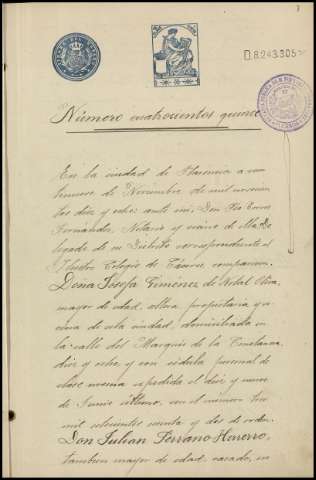 D.8.243.305
Número cuatrocientos quince
En la ciudad de Plasencia a
de Noviembre de mil novecien
tos diez y ocho: ante mi, Don
Fernández, Notario y vecino de ella, De
legado de su Distrito correspondiente al
Ilustre Colegio de Cáceres, comparecen
Doña Josefa Giménez de
mayor de edad, propietaria y ve
cina de esta ciudad, domiciliada en
la calle del Marqués de la Constancia,
diez y ocho y con cédula personal de
clase novena expedida el diez y nueve
de Junio último, con el número tres
mil setecientos y dos de orden.
Don Julian Serrano Herrero,
tambien mayor de edad, casado,